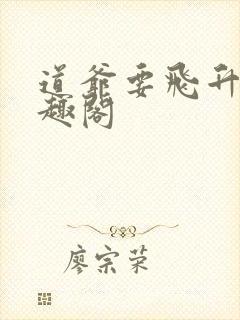 道爷要飛升
趣閣
廖宗荣